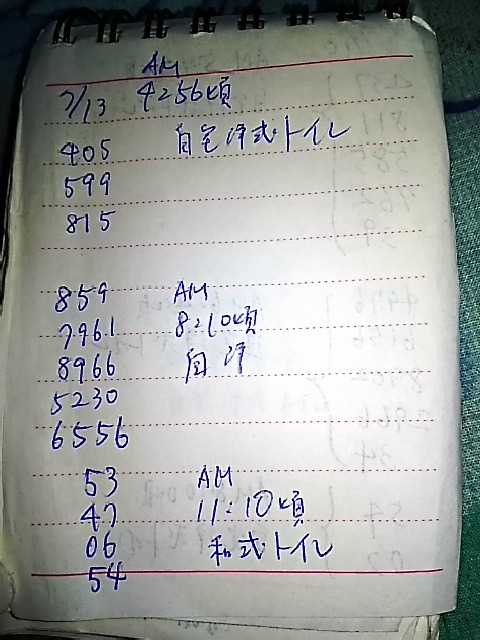 AM
7/13 4:56頃
405 自宅洋式トイレ
599
815
859 AM
7961 8:10頃
8966 自洋
5230
6556
53 AM
47 11:10頃
06 和式トイレ
54